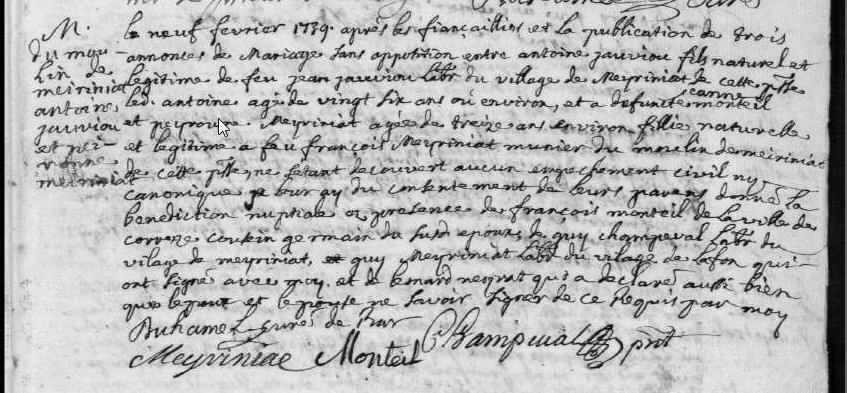 M.
du mou-
lin de
meiriniat
antoine
jauviou
et pei-
ronne
meiriniat
le neuf fevrier 1739. aprés les fiançailles et la publication de trois
annonces de Mariage sans oppotition entre antoine jauviou fils naturel et
legitime de feu jean jauviou labr du village de Meyriniat de cette psse
led. antoine agé de vingt six ans ou environ, et a defunte jeanne monteil
et peyronne Meyriniat agée de treize ans environ fillie naturelle
et legitime a feu françois Meyriniat munier du moulin de meiriniat
de cette psse, ne s'etant decouvert aucun empechement civil ny
canonique je leur ay du contentement de leurs parens donné la
benediction nuptiale en presence de françois monteil de la ville de
correze coutin germain du susd epoux, de guy champeval labr du
vilage de meyriniat, et guy Meyriniat labr du village de lafon qui
ont signé avec moy, et de benard neyrat qui a declaré aussi bien
que lepoux et lepouse ne savoir signer de ce requis par moy
Duhamel curé de Bar
Meyriniac Monteil Champeval pnt